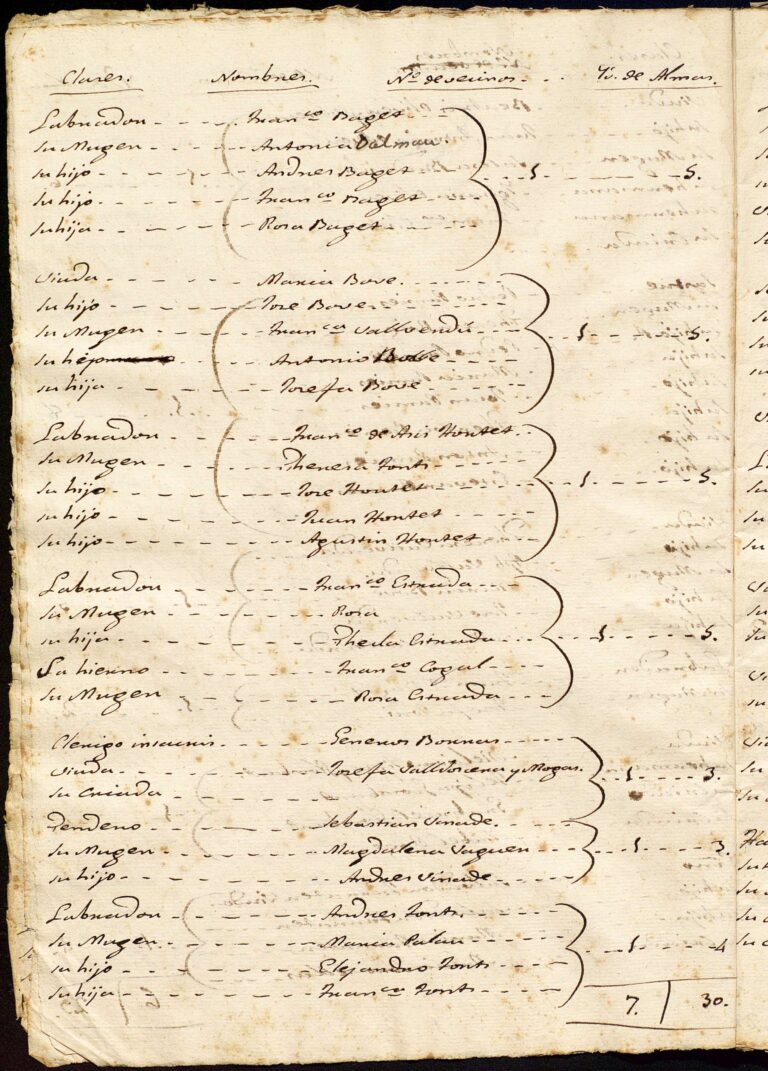 Clases. Nombres. No. de vecinos. Yd. de Almas.
Labrador Franco Baget
su Muger Antonia Dalmau.
su hijo Andres Baget 1 5.
su hijo Franco Baget
su hija Rosa Baget
Viuda Maria Bove.
su hijo Jose Bove
su Muger Franca Vallverdú 1 5.
su hijo Antonio Bove
su hija Josefa Bove
Labrador Franco de Asis Hortet.
su Muger Theresa Fonts
su hijo Jose Hortet 1 5.
su hijo Juan Hortet
su hijo Agustin Hortet
Labrador Franco Estrada
su Muger Rosa
su hija Thecla Estrada 1 5.
su hierno Franco Cogul
su Muger Rosa Estrada
Clerigo Borras
Viuda Josefa y Mogas. 1 3.
su Criada
Tendero Sebastian Vinade.
su Muger Magdalena Saguer 1 3.
su hijo Andres Vinade
Labrador Andres Fonts
su Muger Maria Palau 1 4
su hijo Elejandro Fonts
su hija Franca Fonts
7. 30.